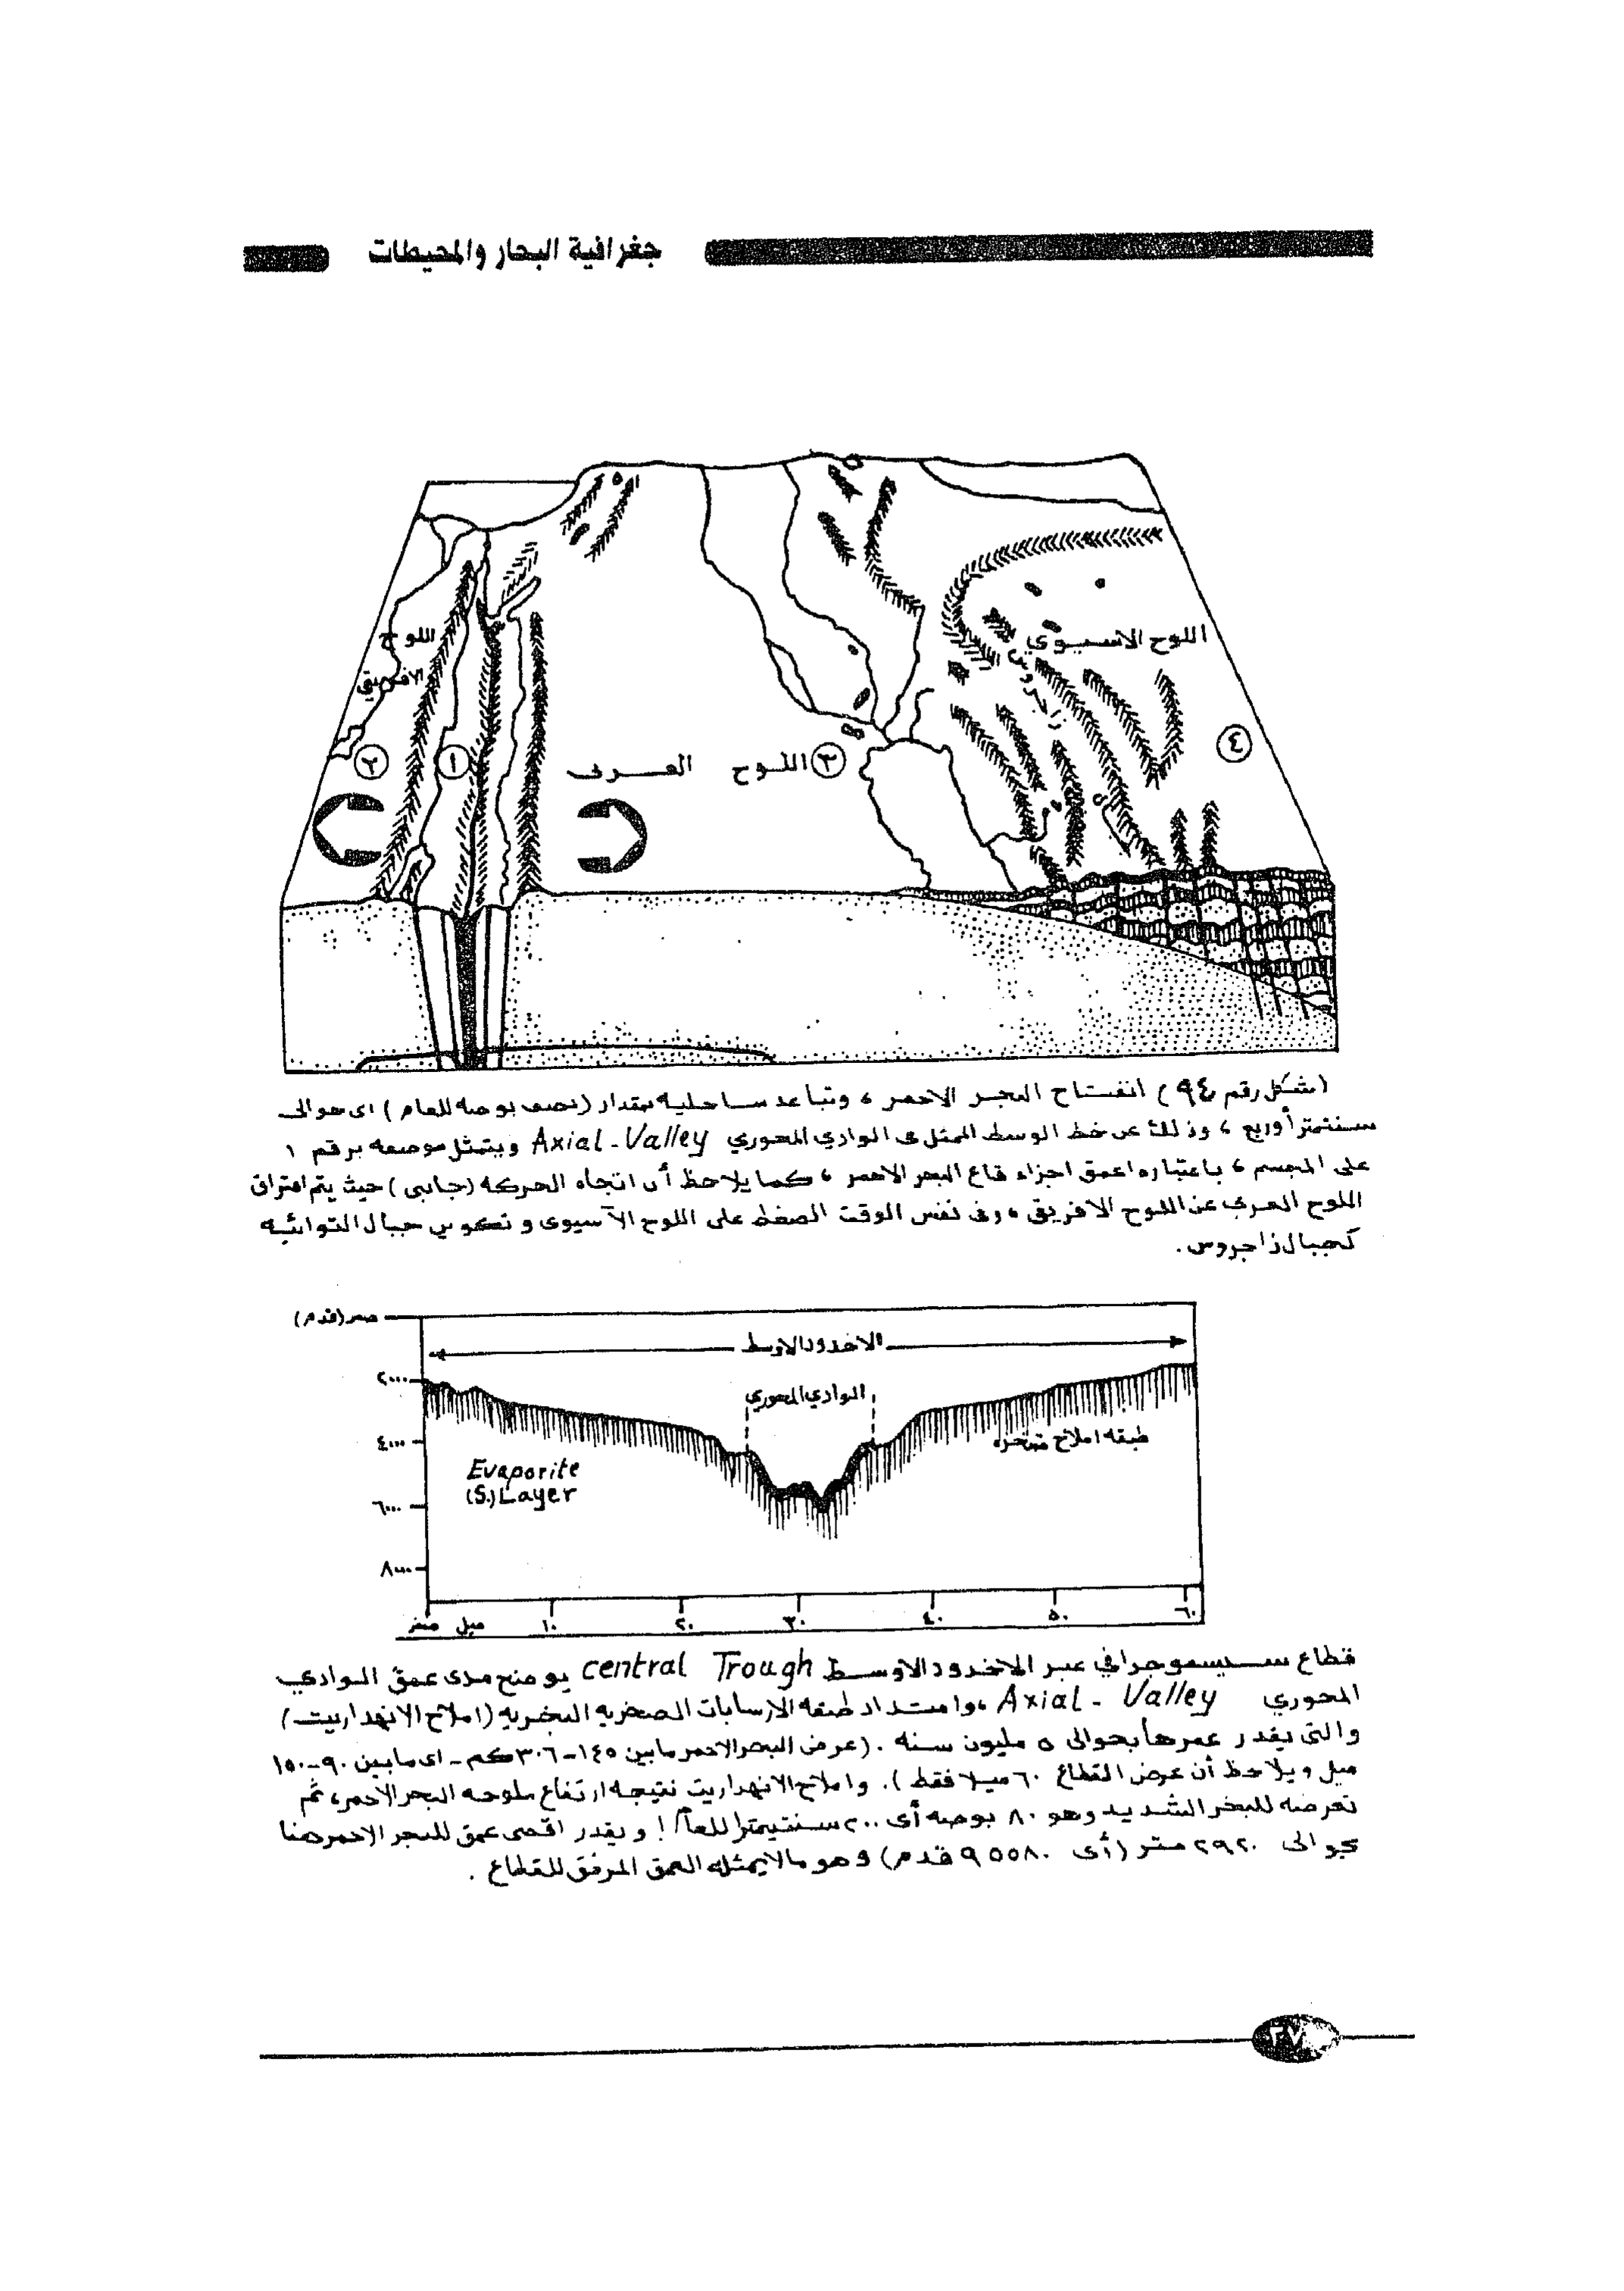 جغرافية البحار والمحيطات
اللوح
الافريقي
٢
١
اللوح العربى
٣
اللوح الاسيوي
زاجروس
٤
(شكل رقم ٩٤) انفستاح البحر الاحمر ، وتباعد ساحليه بمقدار (نصف بوصه للعام) اى حوالى
سنتمتراً وربع ، وذلك عن خط الوسط الممثل فى الوادي المحوري Axial-Valley ويتمثل موضعه برقم ١
على المجسم ، باعتباره اعمق اجزاء قاع البحر الاحمر ، كما يلاحظ أن اتجاه الحركه (جانبى) حيث يتم افتراق
اللوح العربى عن اللوح الافريقى ، وفى نفس الوقت الضغط على اللوح الآسيوى و تكوين جبال التوائيه
كجبال زاجروس.
صفر (قدم)
الاخدود الاوسط
٢٠٠٠
الوادي المحوري
٤٠٠٠
طبقه املاح متبخره
Evaporite
(S.) Layer
٦٠٠٠
٨٠٠٠
صفر ميل ١٠ ٢٠ ٣٠ ٤٠ ٥٠ ٦٠
قطاع سيسموجرافي عبر الاخدود الاوسط central Trough يوضح مدى عمق الوادي
المحوري Axial - Valley ، وامتداد طبقه الارسابات الصخريه التبخريه (املاح الانهداريت)
والتى يقدر عمرها بحوالى ٥ مليون سنه . (عرض البحر الاحمر مابين ١٤٥-٣٠٦ كم - اى مابين ٩٠-١٥٠
ميل ويلاحظ أن عرض القطاع ٦٠ ميلا فقط). واملاح الانهداريت نتيجه ارتفاع ملوحه البحر الاحمر، ثم
تعرضه للبخر الشديد وهو ٨٠ بوصه أى ٢٠٠ سنتيمترا للعام! ويقدر اقصى عمق للبحر الاحمر هنا
بحوالى ٢٩٢٠ متر (أى ٩٥٥٨٠ قدم) وهو مالايمثله العمق المرفق للقطاع .
٢٧